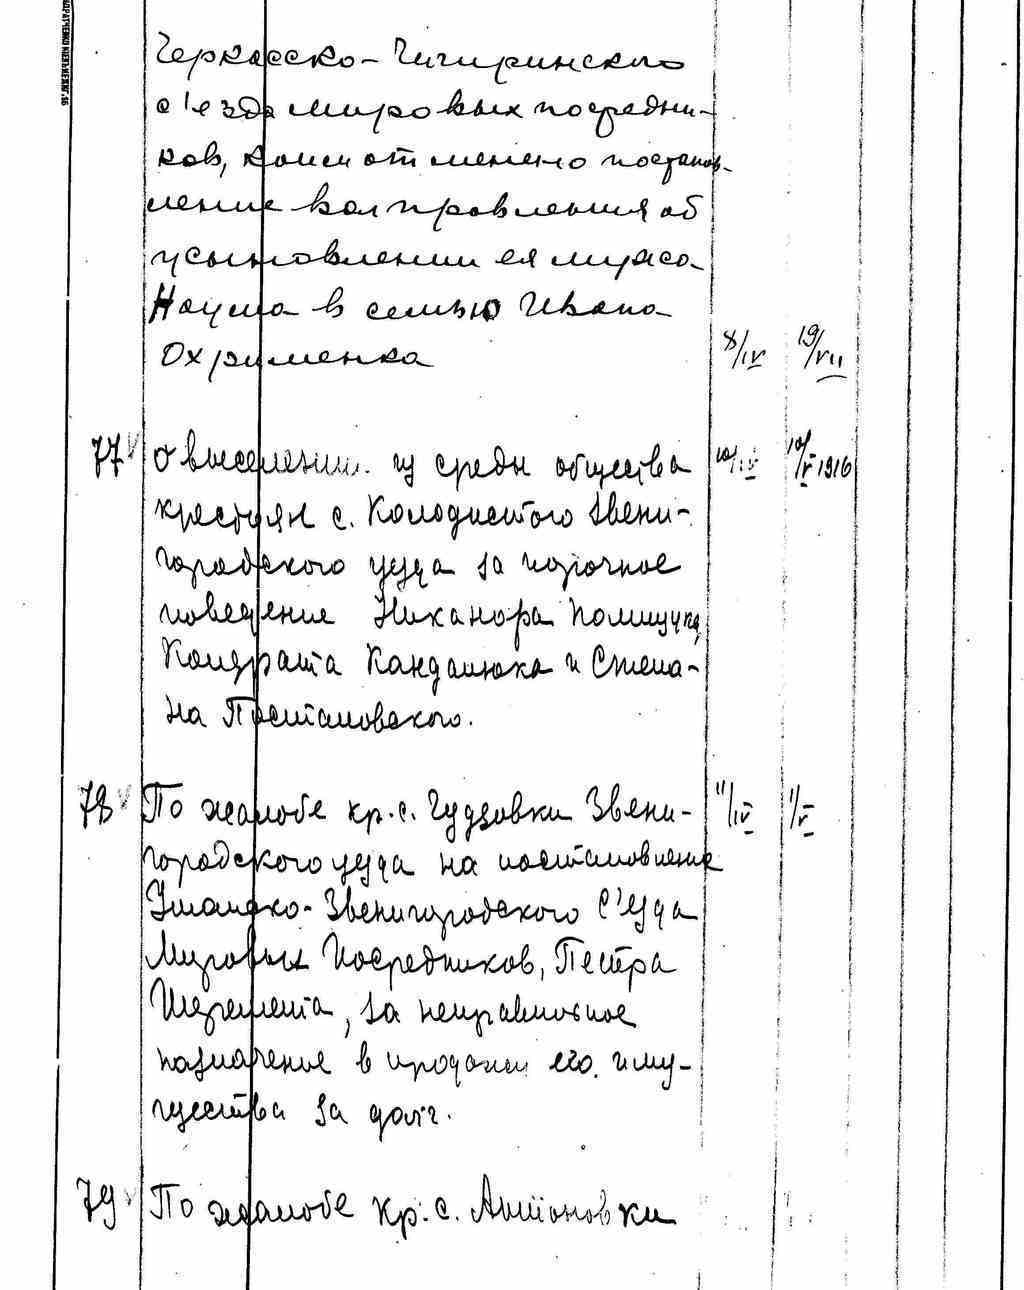 Черкасско-Чигиринского
с'езда мировых посредни-
ков, коим отменено постанов-
ление волправления об
усыновлении ея мужа
Наума в семью Ивана
Охрименка 8/IV 19/VII
77 О выселении из среды общества 10/IV 10/V 1916
крестьян с. Колодистого Звени-
городского уезда за порочное
поведение Никанора Полищука,
Кондрата Кандаиюка и Степа-
на Постановского.
78 По жалобе кр. с. Гудзовки Звени- 11/IV 1/V
городского уезда на постановление
Уманско-Звенигородского С'езда
Мировых Посредников, Петра
Шеремета, за неправильное
назначение в продажу его иму-
щества за долг.
79 По жалобе кр. с. Антоновки